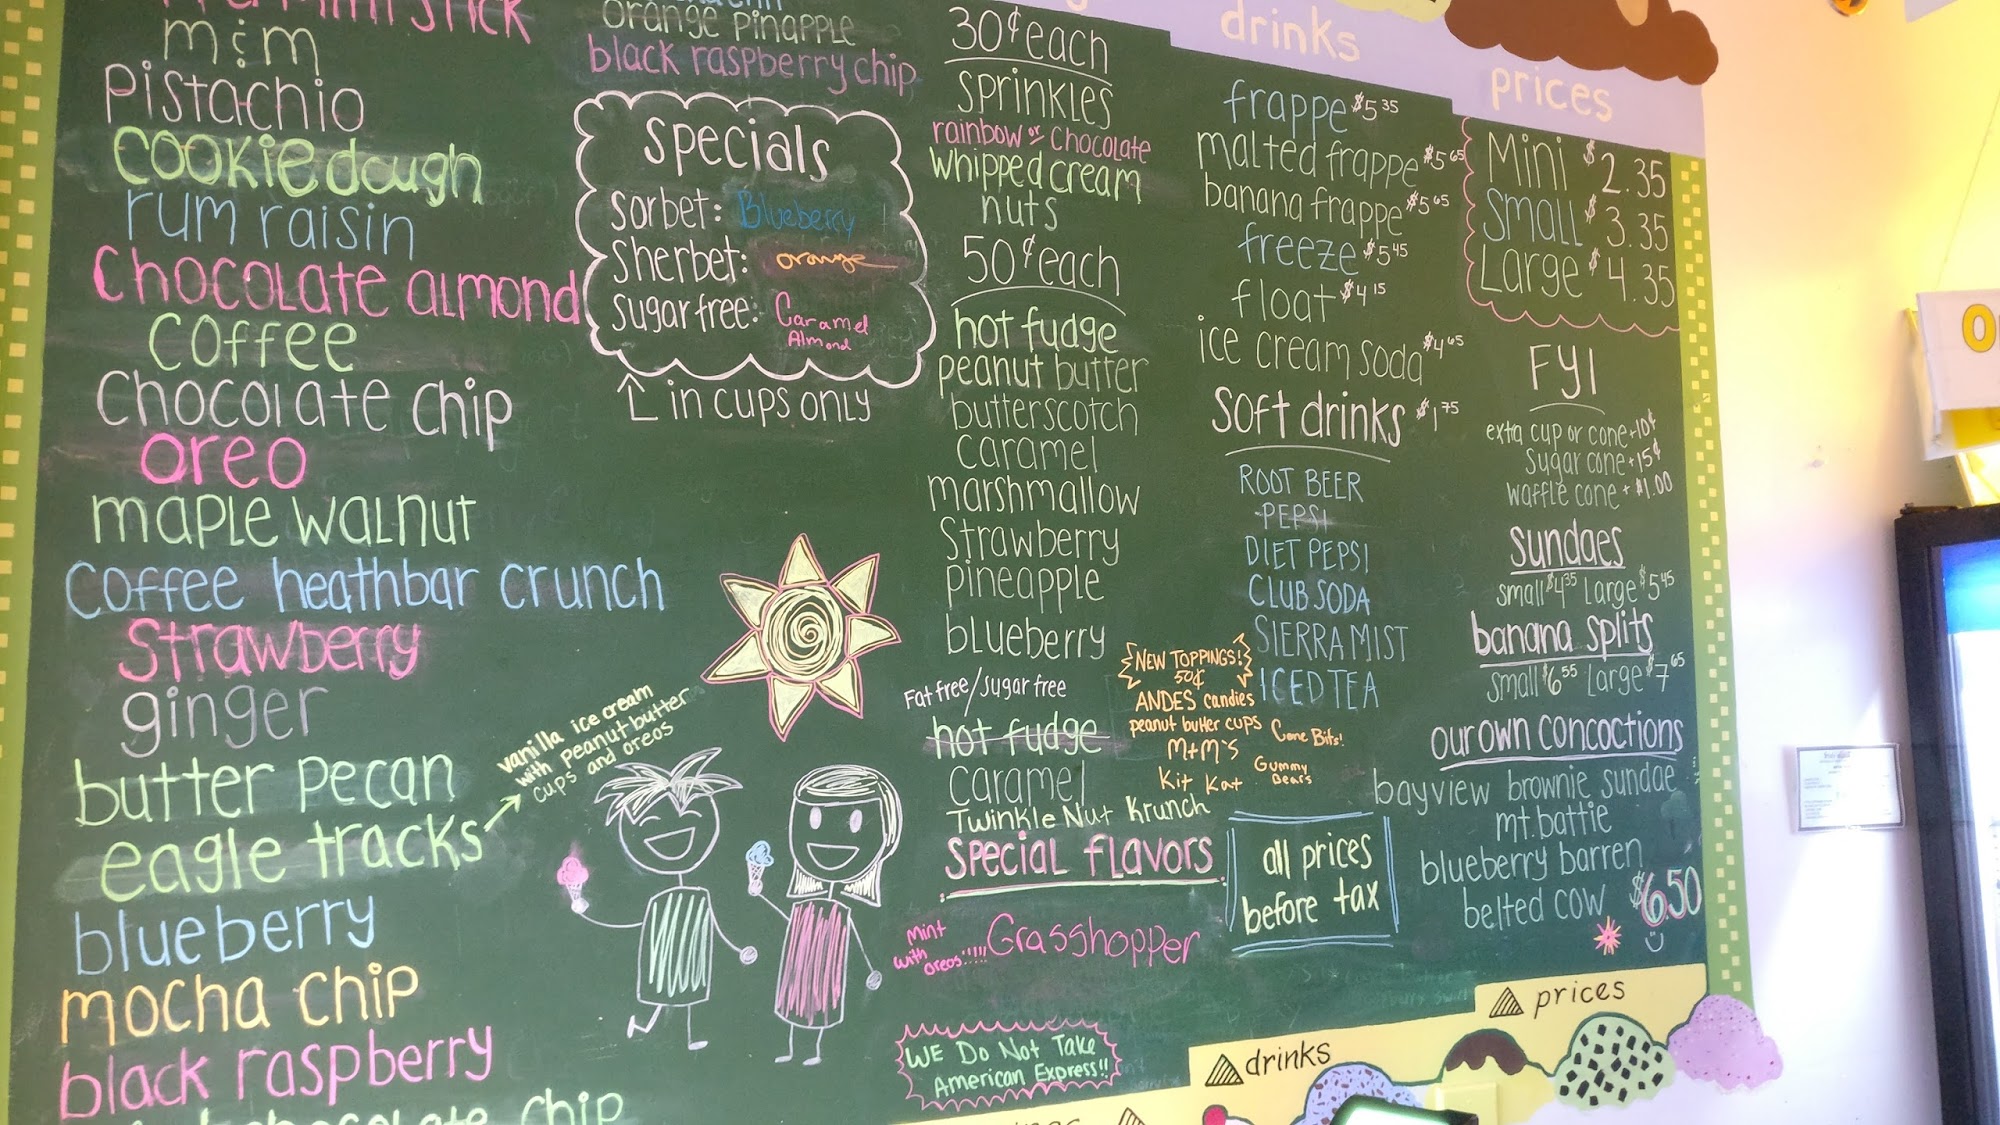 stick
m&m
pistachio
cookie dough
rum raisin
chocolate almond
coffee
chocolate chip
oreo
maple walnut
coffee heathbar crunch
strawberry
ginger
butter pecan
eagle tracks
vanilla ice cream
with peanut butter
cups and oreos
blueberry
mocha chip
black raspberry
chocolate chip
orange pinapple
black raspberry chip
specials
sorbet: Blueberry
sherbet: orange
sugar free: Caramel
Almond
in cups only
30¢ each
sprinkles
rainbow or chocolate
whipped cream
nuts
50¢ each
hot fudge
peanut butter
butterscotch
caramel
marshmallow
strawberry
pineapple
blueberry
Fat free/sugar free
hot fudge
caramel
Twinkle Nut Krunch
NEW TOPPINGS!
50¢
ANDES candies
peanut butter cups
Cone Bits!
M+M's
Gummy
Bears
Kit Kat
special flavors
mint
with
oreos!!!!!
Grasshopper
WE Do Not Take
American Express!!
drinks
frappe $5.35
malted frappe $5.65
banana frappe $5.65
freeze $5.45
float $4.15
ice cream soda $4.65
soft drinks $1.75
ROOT BEER
PEPSI
DIET PEPSI
CLUB SODA
SIERRA MIST
ICED TEA
all prices
before tax
prices
Mini $2.35
Small $3.35
Large $4.35
FYI
extra cup or cone +10¢
sugar cone +15¢
waffle cone + $1.00
sundaes
small $4.35 Large $5.45
banana splits
small $6.55 Large $7.65
our own concoctions
bayview brownie sundae
mt. battie
blueberry barren
belted cow $6.50
prices
drinks